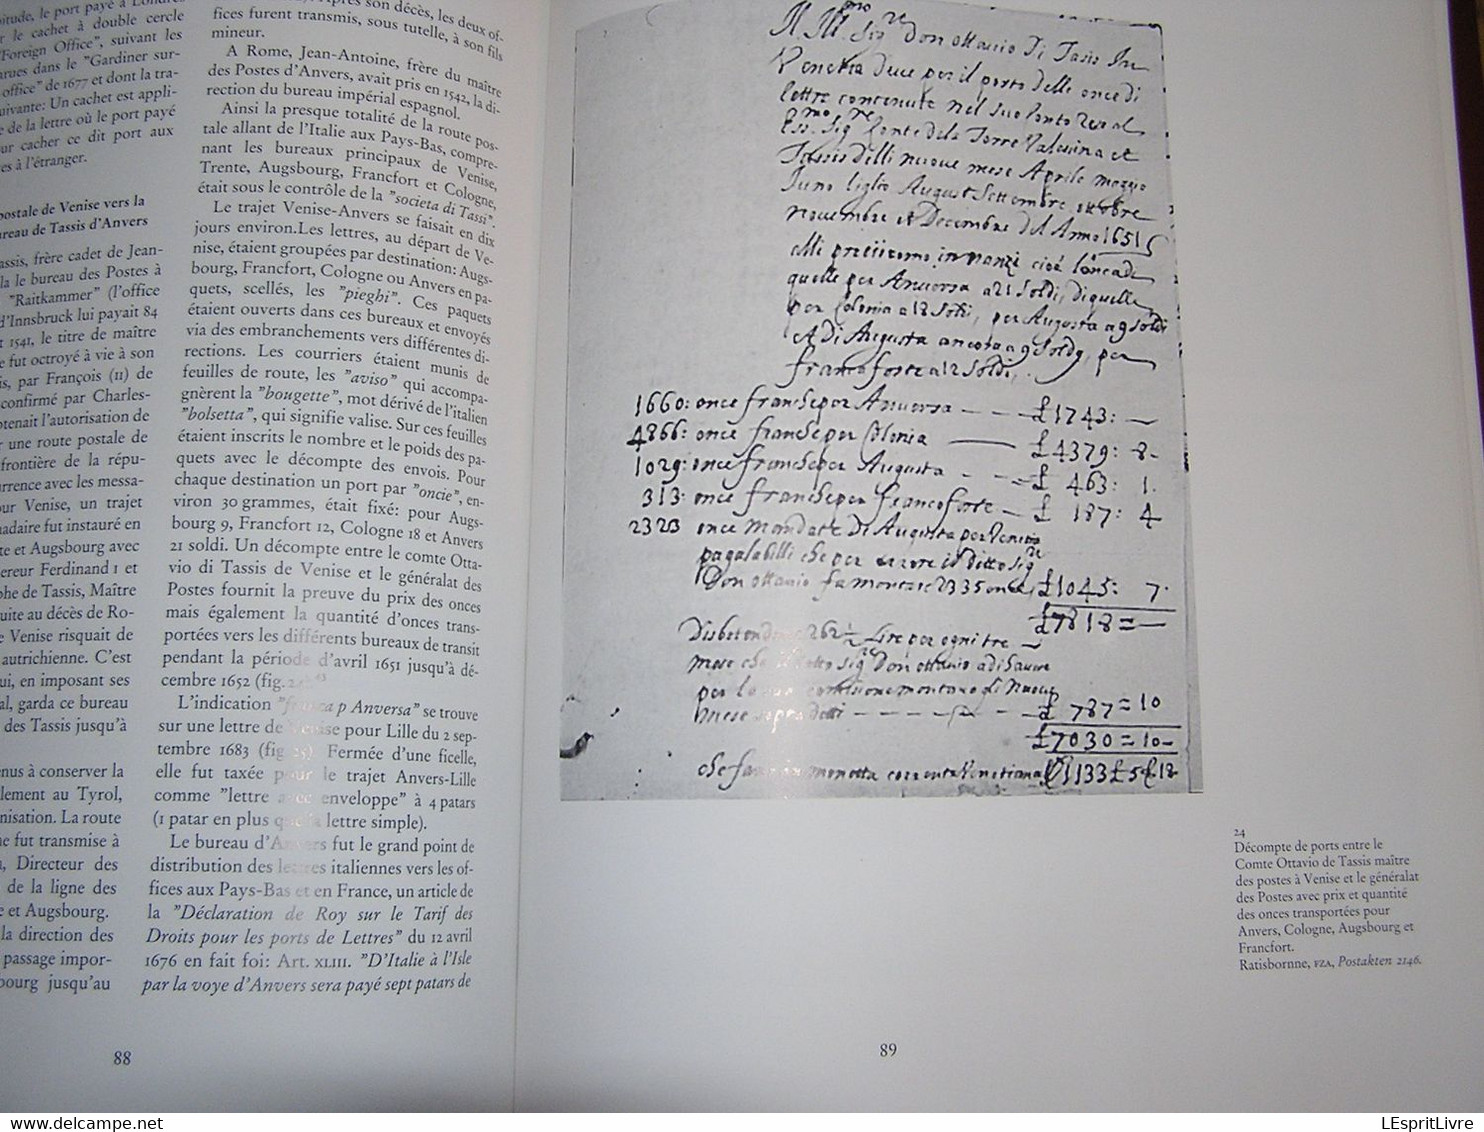 bitude, le port payé à Londres
r le cachet à double cercle
"Foreign Office", suivant les
arues dans le "Gardiner sur-
office" de 1677 et dont la tra-
suivante: Un cachet est appli-
e de la lettre où le port payé
ur cacher ce dit port aux
es à l'étranger.
postale de Venise vers la
reau de Tassis d'Anvers
assis, frère cadet de Jean-
la le bureau des Postes à
"Raitkammer" (l'office
d'Innsbruck lui payait 84
t 1541, le titre de maître
e fut octroyé à vie à son
is, par François (II) de
confirmé par Charles-
otenait l'autorisation de
r une route postale de
frontière de la répu-
rrence avec les messa-
our Venise, un trajet
nadaire fut instauré en
te et Augsbourg avec
ereur Ferdinand I et
phe de Tassis, Maître
uite au décès de Ro-
e Venise risquait de
autrichienne. C'est
ui, en imposant ses
al, garda ce bureau
des Tassis jusqu'à
enus à conserver la
lement au Tyrol,
nisation. La route
ne fut transmise à
, Directeur des
de la ligne des
e et Augsbourg.
la direction des
passage impor-
bourg jusqu'au
Après son décès, les deux of-
fices furent transmis, sous tutelle, à son fils
mineur.
A Rome, Jean-Antoine, frère du maître
des Postes d'Anvers, avait pris en 1542, la di-
rection du bureau impérial espagnol.
Ainsi la presque totalité de la route pos-
tale allant de l'Italie aux Pays-Bas, compre-
nant les bureaux principaux de Venise,
Trente, Augsbourg, Francfort et Cologne,
était sous le contrôle de la "societa di Tassi".
Le trajet Venise-Anvers se faisait en dix
jours environ.Les lettres, au départ de Ve-
nise, étaient groupées par destination: Augs-
bourg, Francfort, Cologne ou Anvers en pa-
quets, scellés, les "pieghi". Ces paquets
étaient ouverts dans ces bureaux et envoyés
via des embranchements vers différentes di-
rections. Les courriers étaient munis de
feuilles de route, les "aviso" qui accompa-
gnèrent la "bougette", mot dérivé de l'italien
"bolsetta", qui signifie valise. Sur ces feuilles
étaient inscrits le nombre et le poids des pa-
quets avec le décompte des envois. Pour
chaque destination un port par "oncie", en-
viron 30 grammes, était fixé: pour Augs-
bourg 9, Francfort 12, Cologne 18 et Anvers
21 soldi. Un décompte entre le comte Otta-
vio di Tassis de Venise et le généralat des
Postes fournit la preuve du prix des onces
mais également la quantité d'onces trans-
portées vers les différents bureaux de transit
pendant la période d'avril 1651 jusqu'à dé-
cembre 1652 (fig.
L'indication p Anversa" se trouve
sur une lettre de Venise pour Lille du 2 sep-
tembre 1683 (fig 25) Fermée d'une ficelle,
elle fut taxée pour le trajet Anvers-Lille
comme "lettre avec enveloppe" à 4 patars
(1 patar en plus que la lettre simple).
Le bureau d'Anvers fut le grand point de
distribution des lettres italiennes vers les of-
fices aux Pays-Bas et en France, un article de
la "Déclaration de Roy sur le Tarif des
Droits pour les ports de Lettres" du 12 avril
1676 en fait foi: Art. XLIII. "D'Italie à l'Isle
par la voye d'Anvers sera payé sept patars de
88
Sig Don Ottavio Di Tasis In
Venetia Deve per il porto delle once di
lettre contenute nel suo Conto al
Sig Conte dela Torre Valsasina et
Tassis delli nuove mese Aprile Maggio
Juno liglio August Settembre ottobre
novembre et Decembre del Anno 1651
quelle per Anversa a 21 Soldi, di quelle
per Colonia a 18 Soldi, per Augusta a 9 Soldi
et Di Augusta ancora a 9 Soldy, per
francoforte a 12 Soldi,
1660: once franche per Anversa - - - £ 1743: —
4866: once franche per Colonia — £ 4379: 8-
1029: once franche per Augusta - - £ 463: 1.
313: once franche per francoforte - £ 187: 4
2323 once mandate Di Augusta per Venetia
pagabilli che per errore il ditto Sig
Don ottavio fa montare 2335 once, £ 1045: 7.
£ 7818 = —
262 1/2 Lire per ogni tre
mese che il detto Sig Don ottavio a di havere
per la sua comissione montano di nuove
mese sopradetti - - - £ 787 = 10
£ 7030 = 10 -
che fano in monetta corrente Venetiana 1133 £ 5 12
24
Décompte de ports entre le
Comte Ottavio de Tassis maître
des postes à Venise et le généralat
des Postes avec prix et quantité
des onces transportées pour
Anvers, Cologne, Augsbourg et
Francfort.
Ratisbornne, FZA, Postakten 2146.
89
LEspritLivre